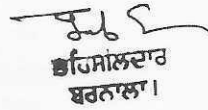 ਤਹਿਸੀਲਦਾਰ
ਬਰਨਾਲਾ।